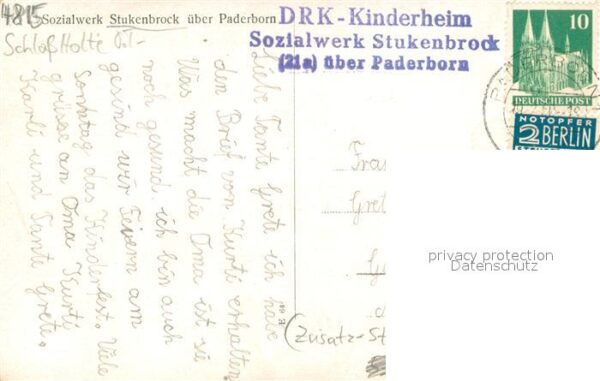 4815
Sozialwerk Stukenbrock über Paderborn
Schloß Holte
DRK-Kinderheim
Sozialwerk Stukenbrock
(21a) über Paderborn
10
DEUTSCHE POST
NOTOPFER
2 BERLIN
Liebe Tante Grete ich habe
den Brief von Kurti erhalten.
Was macht die Oma ist sie
noch gesund. ich bin auch
gesund wir Feiern am
Sonntag das Kinderfest. Viele
grüsse an Oma Kurti
Karli und Tante Grete.
Frau
Gret
(Zusatz-St
privacy protection
Datenschutz